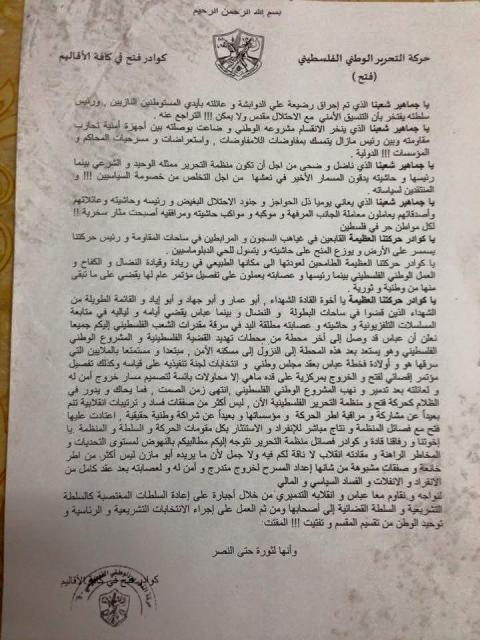 بسم الله الرحمن الرحيم
حركة التحرير الوطني الفلسطيني
كوادر فتح في كافة الأقاليم
(فتح)
يا جماهير شعبنا الذي تم إحراق رضيعة علي الدوابشة و عائلته بأيدي المستوطنين النازيين , ورئيس
سلطته يفتخر بأن التنسيق الأمني مع الاحتلال مقدس ولا يمكن !!! التراجع عنه .
يا جماهير شعبنا الذي ينخر الانقسام مشروعه الوطني و ضاعت بوصلته بين أجهزة أمنية تحارب
مقاومته وبين رئيس مازال يتمسك بمفاوضات اللامفاوضات , واستعراضات و مسرحيات المحاكم و
المؤسسات !!! الدولية .
يا جماهير شعبنا الذي ناضل و ضحى من اجل أن تكون منظمة التحرير ممثله الوحيد و الشرعي بينما
رئيسها و حاشيته يدقون المسمار الأخير في نعشها من اجل التخلص من خصومة السياسيين !!! و
المنتقدين لسياساته .
يا جماهير شعبنا الذي يعاني يوميا ذل الحواجز و جنود الاحتلال البغيض و رئيسه وحاشيته وعائلاتهم
وأصدقائهم يعاملون معاملة الجانب المرفهة و موكبه و مواكب حاشيته ومرافقيه أصبحت مثار سخرية !!
لكل مواطن حر في فلسطين
يا كوادر حركتنا العظيمة القابعين في غياهب السجون و المرابطين في ساحات المقاومة و رئيس حركتنا
يسمسر على الأرض و يوزع المنح على حاشيته و يتوسل للحي الدبلوماسيين .
يا كوادر حركتنا العظيمة الطامحين لعودتها الى مكانها الطبيعي في ريادة وقيادة النضال و الكفاح و
العمل الوطني الفلسطيني بينما رئيسها و عصابته يعملون على تفصيل مؤتمر عام لها يقضي على ما تبقى
منها من وطنية و ثورية .
يا كوادر حركتنا العظيمة يا أخوة القادة الشهداء , أبو عمار و أبو جهاد و أبو إياد و القائمة الطويلة من
الشهداء الذين قضوا في ساحات البطولة و النضال و بينما عباس يقضي أيامه و لياليه في متابعة
المسلسلات التلفزيونية و حاشيته و عصابته مطلقة اليد في سرقة مقدرات الشعب الفلسطيني إليكم جميعا
نعلن أن عباس قد وصل إلى آخر محطة من محطات تهديد القضية الفلسطينية و المشروع الوطني
الفلسطيني وهو يستعد بعد هذه المحطة إلى النزول إلى مسكنه الأمن , مبتعدا و مستمتعا بالملايين التي
سرقها هو و أولاده فخطة عباس بعقد مجلس وطني و انتخاب لجنة تنفيذيه على قياسه وكذلك تفصيل
مؤتمر إقصائي لفتح و الخروج بمركزية على قده ماهي إلا محاولات بائسة لتصميم مسار خروج آمن له
و لعائلته بعد تدمير و نهب المشروع الوطني الفلسطيني , انتهى زمن الصمت , فما يحاك و يدور في
الظلام كحركة فتح و منظمة التحرير الفلسطينية الآن , ليس أكثر من صفقات فساد و ترتيبات انقلابية تتم
بعيداً عن مشاركة و مراقبة اطر الحركة و مؤسساتها و بعيداً عن شراكة وطنية حقيقية , اعتادت عليها
فتح مع فصائل المنظمة و نتاج مباشر للإنفراد و الاستئثار بكل مقومات الحركة و السلطة و المنظمة .يا
إخوتنا و رفاقنا قادة و كوادر فصائل منظمة التحرير نتوجه إليكم مطالبيكم بالنهوض لمستوى التحديات و
المخاطر الراهنة و مقادته انقلاب لا ناقة لكم فيه ولا جمل لأن ما يريده أبو مازن ليس أكثر من اطر
خانعة و صفقات مشبوهة من شانها إعداد المسرح لخروج متدرج و آمن له و لعصابته بعد عقد كامل من
الانفراد و الانفلات و الفساد السياسي و المالي
لنواجه و نقاوم معا عباس و انقلابه التدميري من خلال أجباره على إعادة السلطات المغتصبة كالسلطة
التشريعية و السلطة القضائية إلى أصحابها ومن ثم العمل على إجراء الانتخابات التشريعية و الرئاسية و
توحيد الوطن من تقسيم المقسم و تفتيت !!! المفتت .
وأنها لثورة حتى النصر
كوادر فتح في كافة الأقاليم